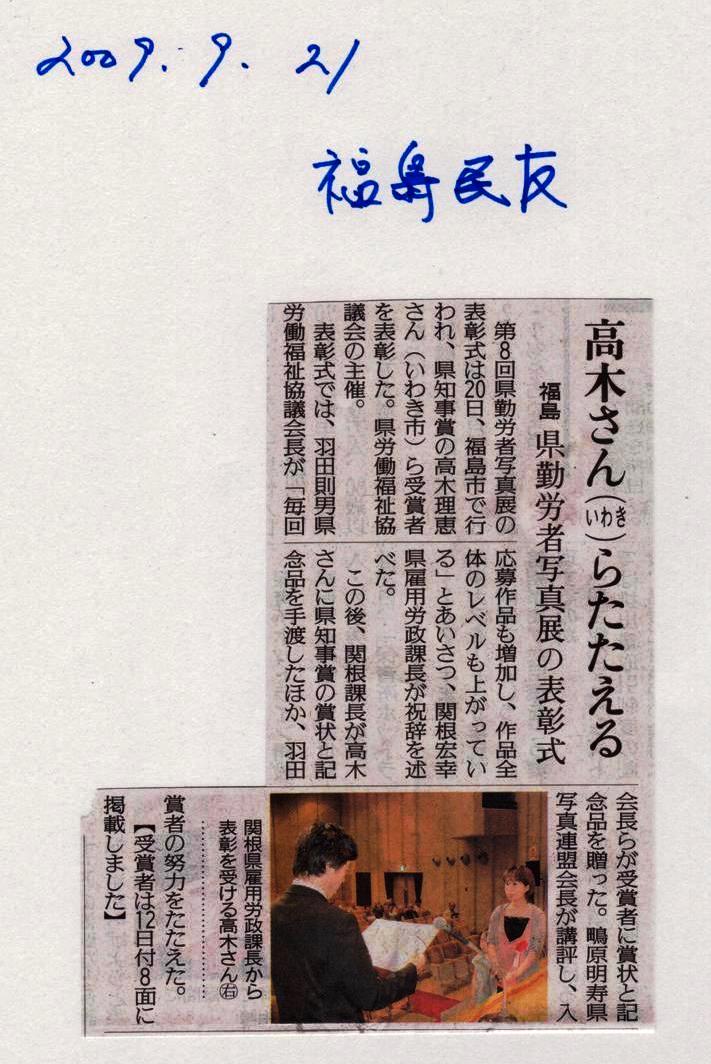 2009.9.21
福島民友
高木さん(いわき)らたたえる
福島 県勤労者写真展の表彰式
第8回県勤労者写真展の
表彰式は20日、福島市で行
われ、県知事賞の高木理恵
さん(いわき市)ら受賞者
を表彰した。県労働福祉協
議会の主催。
表彰式では、羽田則男県
労働福祉協議会長が「毎回
応募作品も増加し、作品全
体のレベルも上がってい
る」とあいさつ、関根宏幸
県雇用労政課長が祝辞を述
べた。
この後、関根課長が高木
さんに県知事賞の賞状と記
念品を手渡したほか、羽田
会長らが受賞者に賞状と記
念品を贈った。鴫原明寿県
写真連盟会長が講評し、入
賞者の努力をたたえた。
【受賞者は12日付8面に
掲載しました】
関根県雇用労政課長から
表彰を受ける高木さん㊨